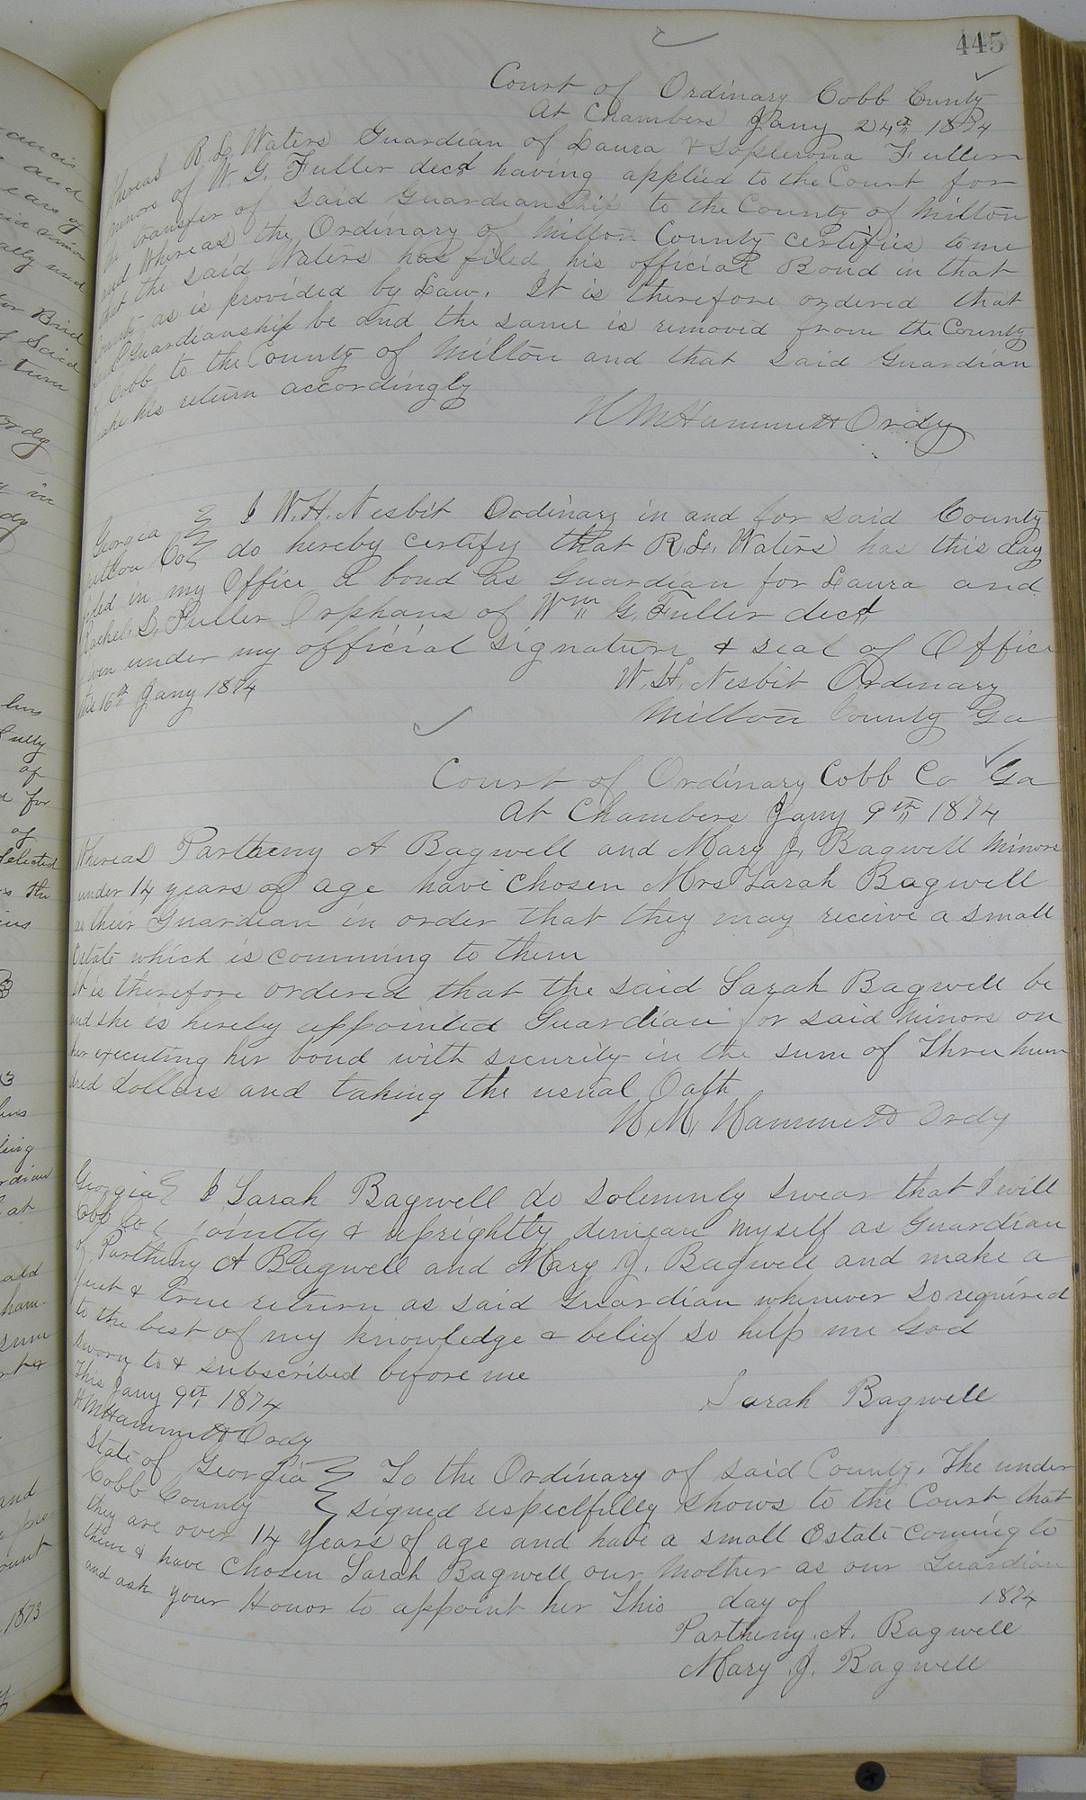 445
Court of Ordinary Cobb County
At Chambers Jany 24th 1874
Whereas R. L. Waters Guardian of Laura & Fuller
minors of W. G. Fuller decd having applied to the Court for
the transfer of said Guardianship to the County of Milton
and Whereas the Ordinary of Milton County certifies to me
that the said Waters has filed his official Bond in that
County as is provided by Law. It is therefore ordered that
said Guardianship be and the same is removed from the County
of Cobb to the County of Milton and that said Guardian
make his return accordingly
H M Hammett Ordy
Georgia I W. H. Nesbit Ordinary in and for said County
Milton Co do hereby certify that R. L. Waters has this day
filed in my Office a bond as Guardian for Laura and
Rachel S. Fuller Orphans of Wm G. Fuller decd
Given under my official signature & seal of Office
this 16th Jany 1874
W. H. Nesbit Ordinary
Milton County Ga
Court of Ordinary Cobb Co Ga
At Chambers Jany 9th 1874
Whereas Partheny A Bagwell and Mary J. Bagwell minors
under 14 years of age have chosen Mrs Sarah Bagwell
as their Guardian in order that they may receive a small
Estate which is comming to them
It is therefore ordered that the said Sarah Bagwell be
and she is hereby appointed Guardian for said minors on
her executing her bond with security in the sum of Three hun
dred dollars and taking the usual Oath
H. M. Hammett Ordy
Georgia I Sarah Bagwell do solemnly swear that I will
Cobb Co & uprightly demean myself as Guardian
of Partheny A Bagwell and Mary J. Bagwell and make a
just & true return as said Guardian whenever so required
to the best of my knowledge & belief so help me God
Sworn to & subscribed before me
This Jany 9th 1874
Sarah Bagwell
H M Hammett Ordy
State of Georgia To the Ordinary of said County. The under
Cobb County signed respectfully shows to the Court that
they are over 14 years of age and have a small Estate coming to
them & have chosen Sarah Bagwell our Mother as our Guardian
and ask your Honor to appoint her This day of 1874
Partheny. A. Bagwell
Mary J. Bagwell